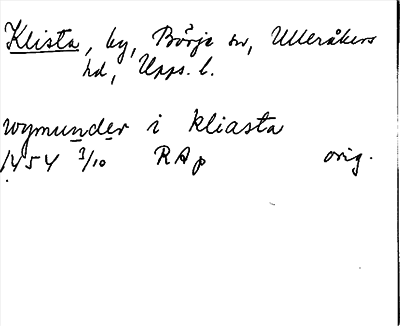 Klista, by, Börje sn, Ulleråkers
hd, Upps. l.
wymunder i kliasta
1454 3/10 RAp orig.